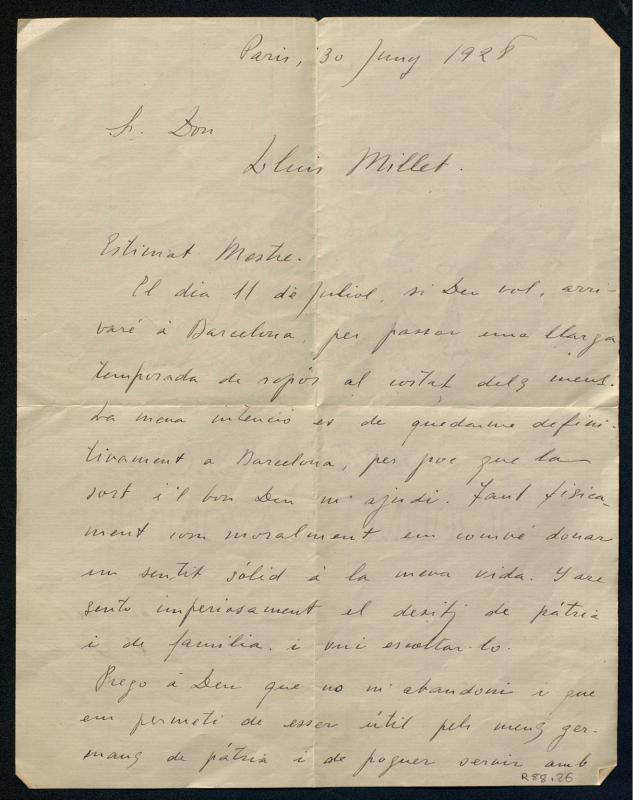 Paris, 30 Juny 1928
Sr. Don
Lluis Millet.
Estimat Mestre.
El dia 11 de Juliol, si Deu vol, arri-
varé à Barcelona, per passar una llarga
temporada de repós al costat dels meus.
La meva intenció es de quedarme defini-
tivament a Barcelona, per poc que la
sort i'l bon Deu m'ajudi. Tant fisica-
ment com moralment em convé donar
un sentit sólid à la meva vida. Y are
sento imperiosament el desitj de pátria
i de familia, i vui escoltar-lo.
Prego à Deu que no m'abandoni i que
em permeti de esser útil pels meus ger-
mans de pátria i de poguer servir amb
R88.26